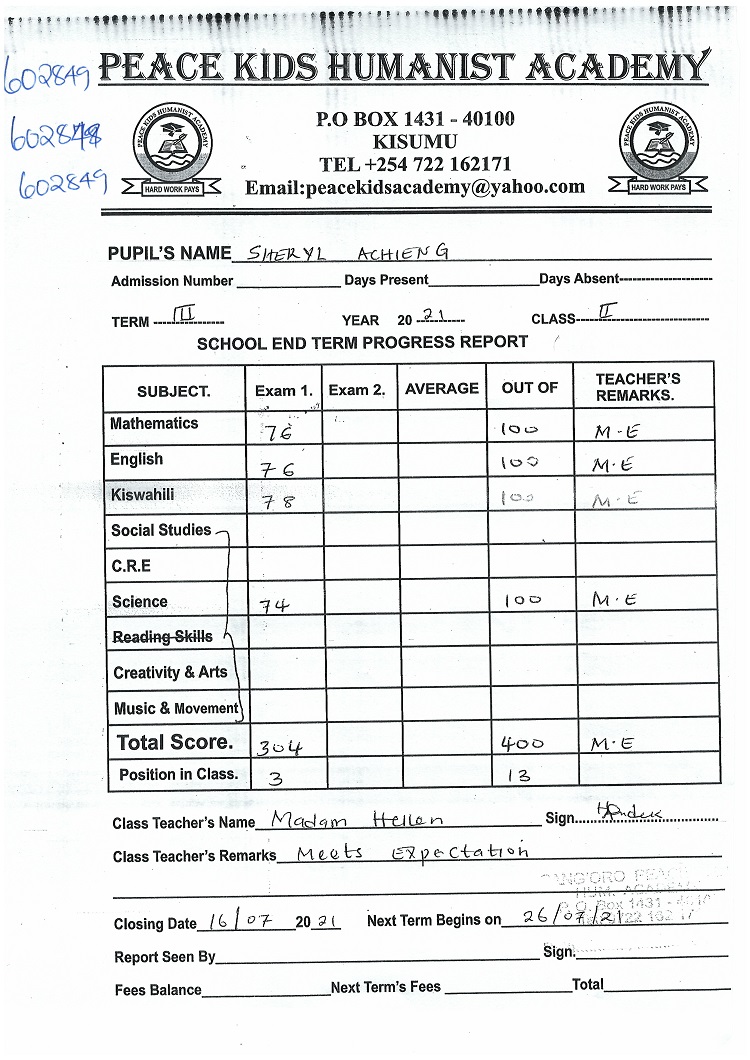 602849 PEACE KIDS HUMANIST ACADEMY
602849
602849
PEACE KIDS HUMANIST ACADEMY
HARD WORK PAYS
P.O BOX 1431 - 40100
KISUMU
TEL +254 722 162171
Email:peacekidsacademy@yahoo.com
PEACE KIDS HUMANIST ACADEMY
HARD WORK PAYS
PUPIL'S NAME SHERYL ACHIENG
Admission Number Days Present Days Absent
TERM III YEAR 20 21 CLASS II
SCHOOL END TERM PROGRESS REPORT
SUBJECT. Exam 1. Exam 2. AVERAGE OUT OF TEACHER'S REMARKS.
Mathematics 76 100 M.E
English 76 100 M.E
Kiswahili 78 100 M.E
Social Studies
C.R.E
Science 74 100 M.E
Reading Skills
Creativity & Arts
Music & Movement
Total Score. 304 400 M.E
Position in Class. 3 13
Class Teacher's Name Madam Hellen Sign.
Class Teacher's Remarks Meets Expectation
HUM. ACADEMY
P.O. Box 1431 - 401
Closing Date 16/07 20 21 Next Term Begins on 26/07/21
Report Seen By Sign.
Fees Balance Next Term's Fees Total